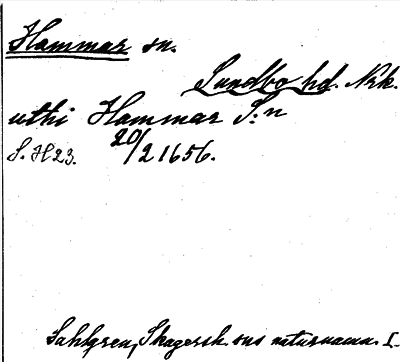 Hammar sn.
Sundbo hd. Nrk.
uthi Hammar S:n
S. H 23. 20/2 1656.
Sahlgren, Skagersh. sns naturnamn. I.